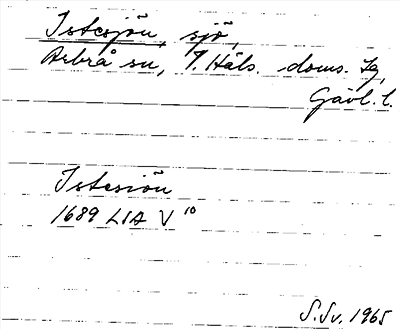 Istesjön, sjö,
Arbrå sn, V. Häls. doms. tg,
Gävl. l.
Istesiön
1689 LIA V 10
S.Sv. 1965